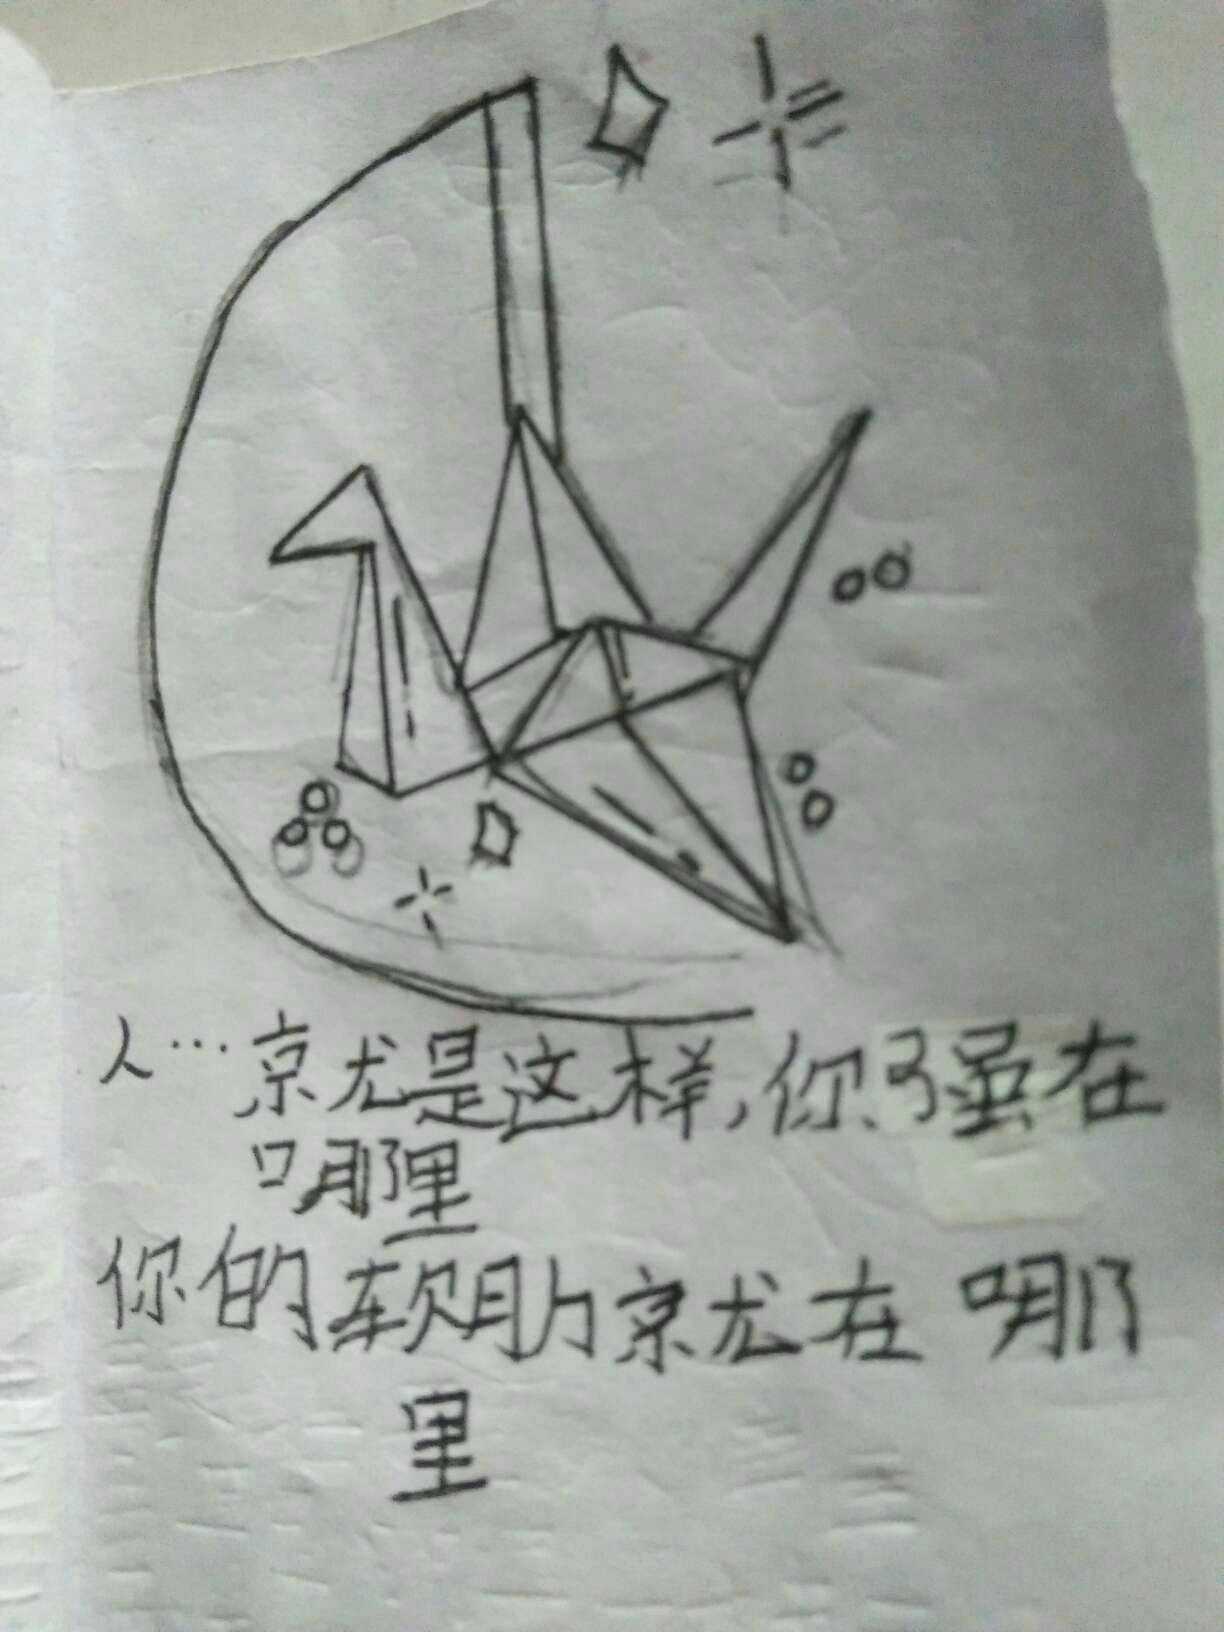 人…就是这样,你强在
哪里
你的软肋就在哪
里